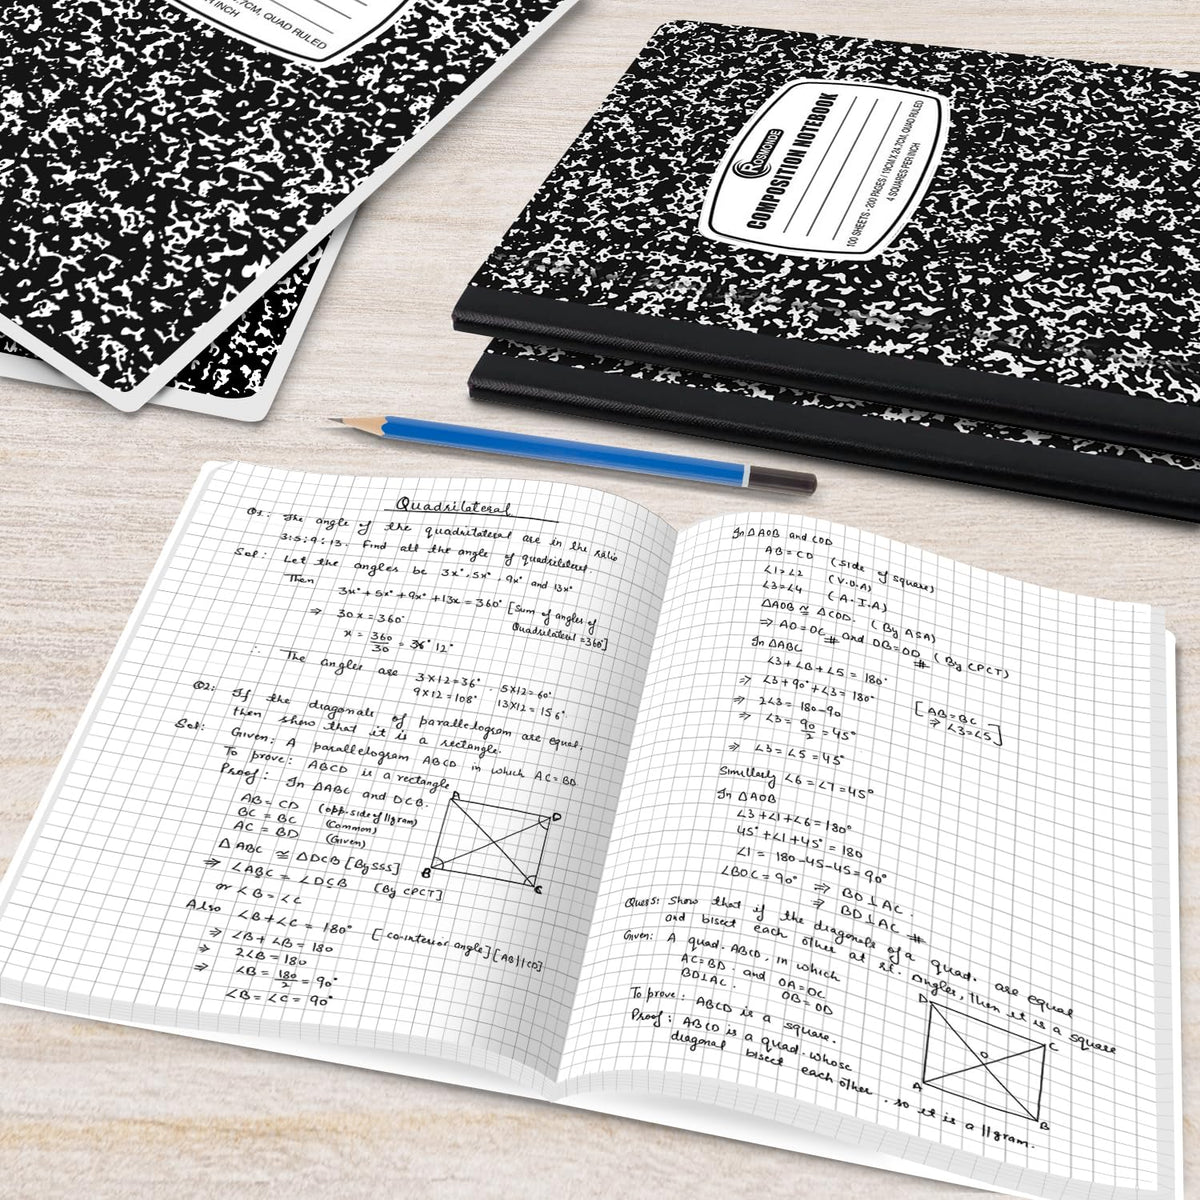 7CM, QUAD RULED
R INCH
ROSMONDE
COMPOSITION NOTEBOOK
100 SHEETS - 200 PAGES / 19CM X 24.7CM, QUAD RULED
4 SQUARES PER INCH
Quadrilateral
Q1: The angle of the quadrilateral are in the ratio
3:5:9:13. Find all the angle of quadrilateral.
Sol: Let the angles be 3x°, 5x°, 9x° and 13x°
Then
3x° + 5x° + 9x° + 13x = 360° [Sum of angles of
Quadrilateral = 360°]
⇒ 30x = 360°
x = 360/30 = 12°
∴ The angles are 3×12=36°, 5×12=60°
9×12=108° 13×12=156°
Q2: If the diagonals of parallelogram are equal,
then show that it is a rectangle.
Sol: Given: A parallelogram ABCD in which AC=BD
To prove: ABCD is a rectangle
Proof: In ΔABC and DCB.
AB = CD (opp. side of ||gram)
BC = BC (Common)
AC = BD (Given)
Δ ABC ≅ ΔDCB [By SSS]
⇒ ∠ABC = ∠DCB [By CPCT]
or ∠B = ∠C
Also ∠B + ∠C = 180° [co-interior angle] [AB||CD]
⇒ ∠B + ∠B = 180
⇒ 2∠B = 180
⇒ ∠B = 180/2 = 90°
∠B = ∠C = 90°
A
D
B
C
In Δ AOB and COD
AB = CD (side of square)
∠1 = ∠2 (V.O.A)
∠3 = ∠4 (A.I.A)
ΔAOB ≅ ΔCOD. (By ASA)
⇒ AO = OC and OB = OD (By CPCT)
# #
In ΔABC
∠3 + ∠B + ∠5 = 180°
⇒ ∠3 + 90° + ∠3 = 180°
⇒ 2∠3 = 180-90 [AB = BC
⇒ ∠3 = 90/2 = 45° ⇒ ∠3 = ∠5]
⇒ ∠3 = ∠5 = 45°
Simillarly ∠6 = ∠7 = 45°
In ΔAOB
∠3 + ∠1 + ∠6 = 180°
45° + ∠1 + 45° = 180
∠1 = 180-45-45 = 90°
∠BOC = 90° ⇒ BO ⊥ AC.
⇒ BD ⊥ AC #
Ques 5: Show that if the diagonals of a quad. are equal
and bisect each other at rt. angles, then it is a square
Given: A quad. ABCD, in which
AC = BD. and OA = OC
BD ⊥ AC. OB = OD
To prove: ABCD is a square.
Proof: ABCD is a quad. whose
diagonal bisect each other, so it is a ||gram.
D
C
O
A
B